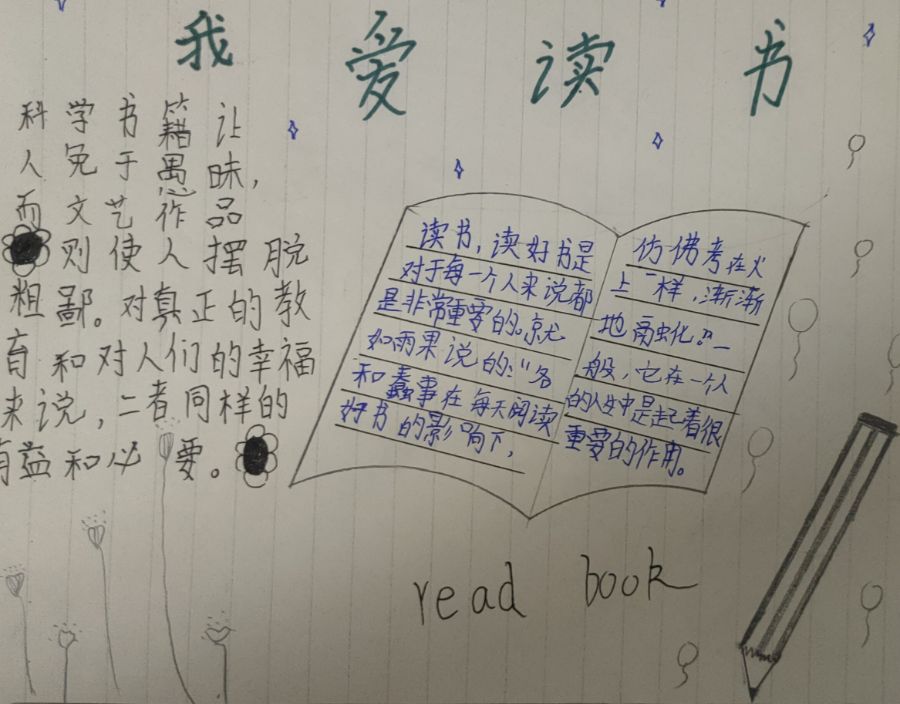 我爱读书
科学书籍让
人免于愚昧,
而文艺作品
则使人摆脱
粗鄙。对真正的教
育和对人们的幸福
来说,二者同样的
有益和必要。
读书,读好书是
对于每一个人来说都
是非常重要的。就
如雨果说的:“各
和蠢事在每天阅读
好书的影响下,
仿佛考在火
上一样,渐渐
地融化。”一
般,它在一个人
的人生中是起着很
重要的作用。
read book